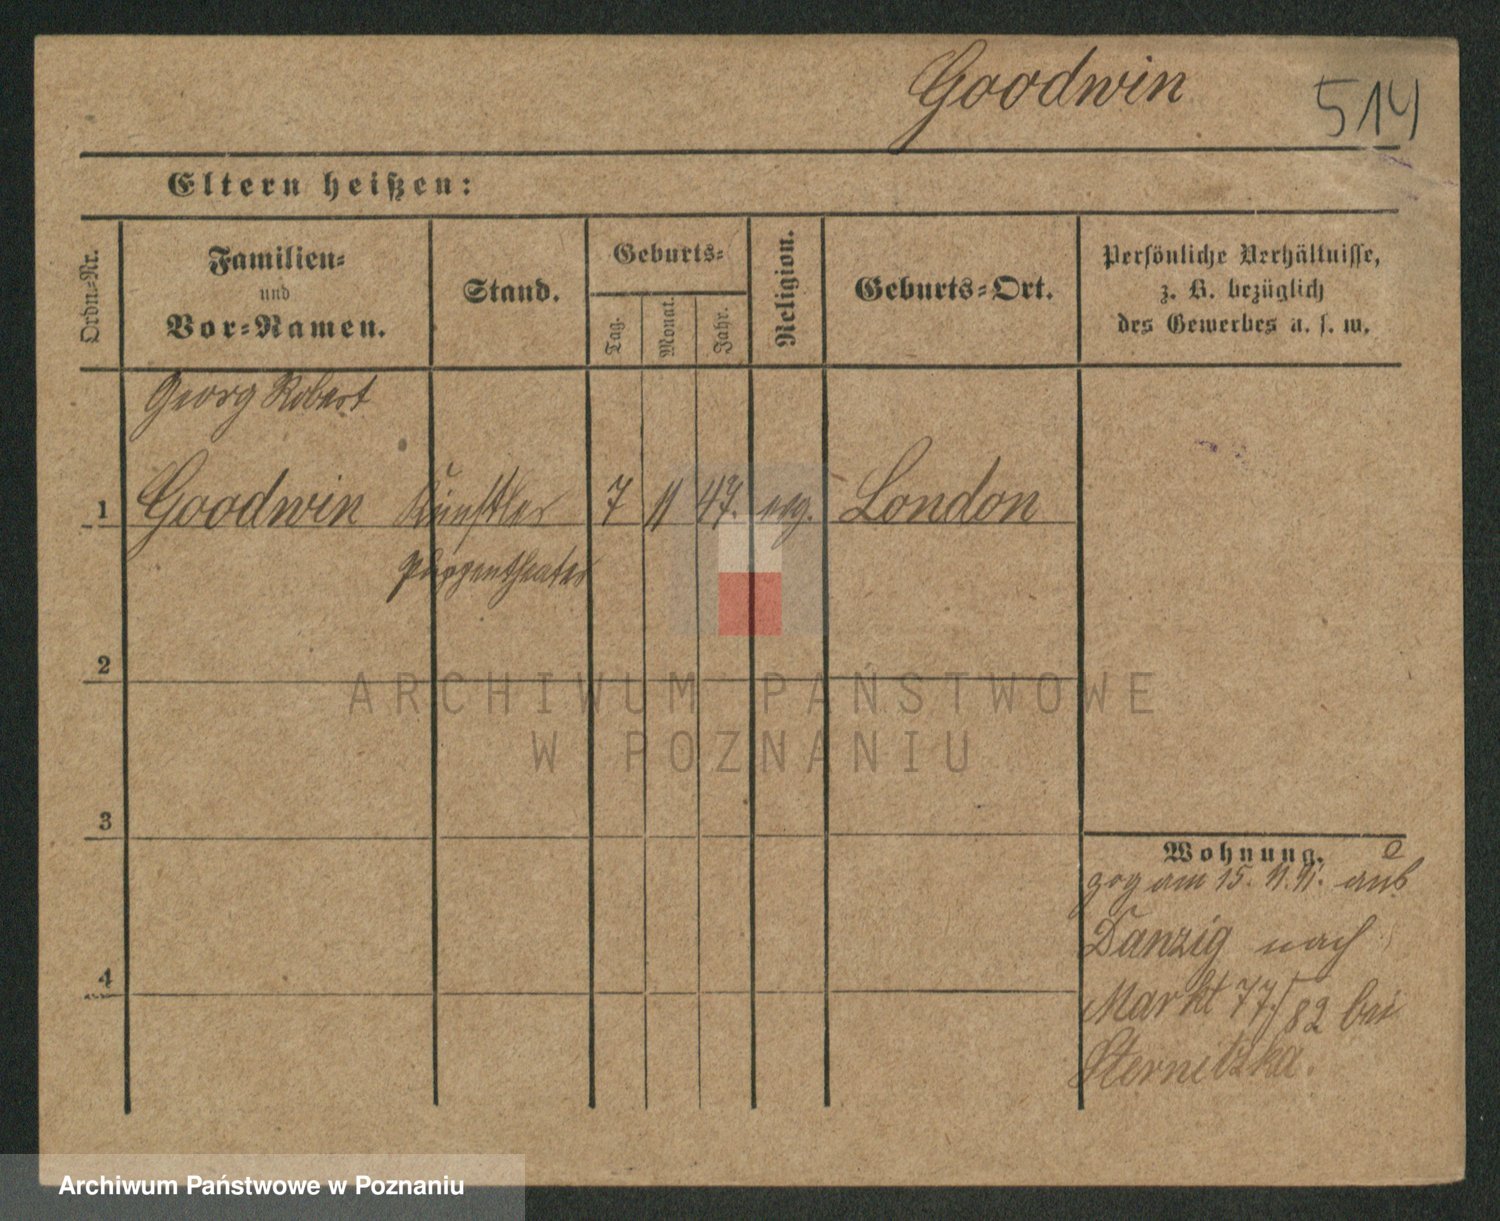 Goodwin 514
Eltern heißen:
Ordn.-Nr.
Familien-
und
Vor-Namen.
Stand.
Geburts-
Tag.
Monat.
Jahr.
Religion.
Geburts-Ort.
Persönliche Verhältnisse,
z. B. bezüglich
des Gewerbes u. s. w.
Georg Robert
1 Goodwin Künstler 7 11 47. evg. London
Puppentheater
2
3
4
Wohnung.
zog am 15. 11. 91. aus
Danzig nach
Markt 77/82 bei
Sternetzka.
ARCHIWUM PAŃSTWOWE
W POZNANIU
Archiwum Państwowe w Poznaniu